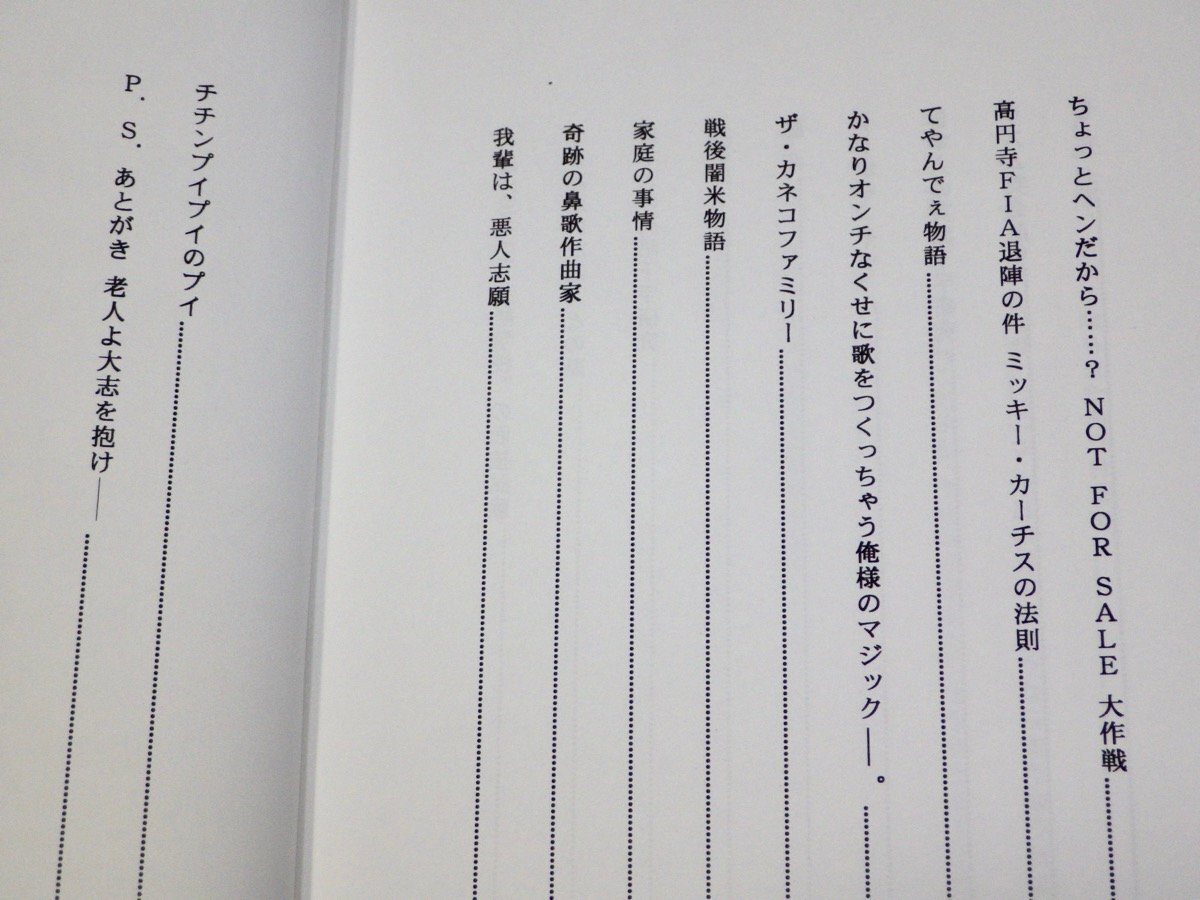 ちょっとヘンだから……? NOT FOR SALE 大作戦
高円寺FIA退陣の件 ミッキー・カーチスの法則
てやんでぇ物語
かなりオンチなくせに歌をつくっちゃう俺様のマジック──。
ザ・カネコファミリー
戦後闇米物語
家庭の事情
奇跡の鼻歌作曲家
我輩は、悪人志願
チチンプイプイのプイ
P.S.あとがき 老人よ大志を抱け──